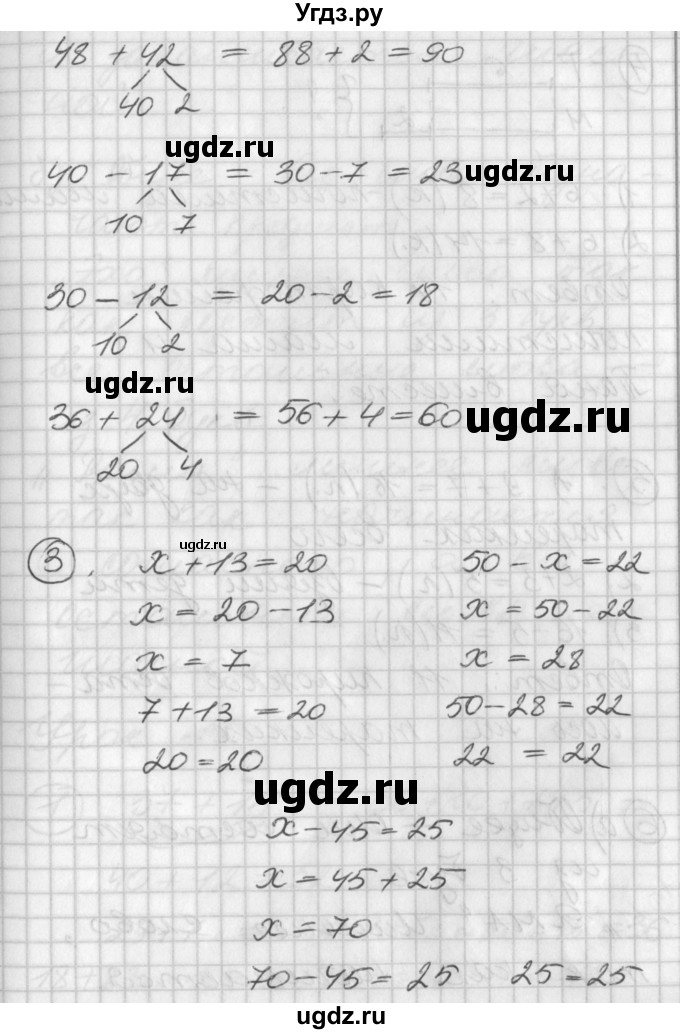 Угдз.ру
48 + 42 = 88 + 2 = 90
40 2
ugdz.ru
40 - 17 = 30 - 7 = 23 ugdz.ru
10 7
30 - 12 = 20 - 2 = 18
10 2
ugdz.ru
36 + 24 = 56 + 4 = 60 ugdz.ru
20 4
ugdz.ru
3. x + 13 = 20 50 - x = 22
x = 20 - 13 x = 50 - 22
x = 7 x = 28
7 + 13 = 20 50 - 28 = 22
20 = 20 22 = 22
ugdz.ru
x - 45 = 25
x = 45 + 25
x = 70
70 - 45 = 25 25 = 25
ugdz.ru